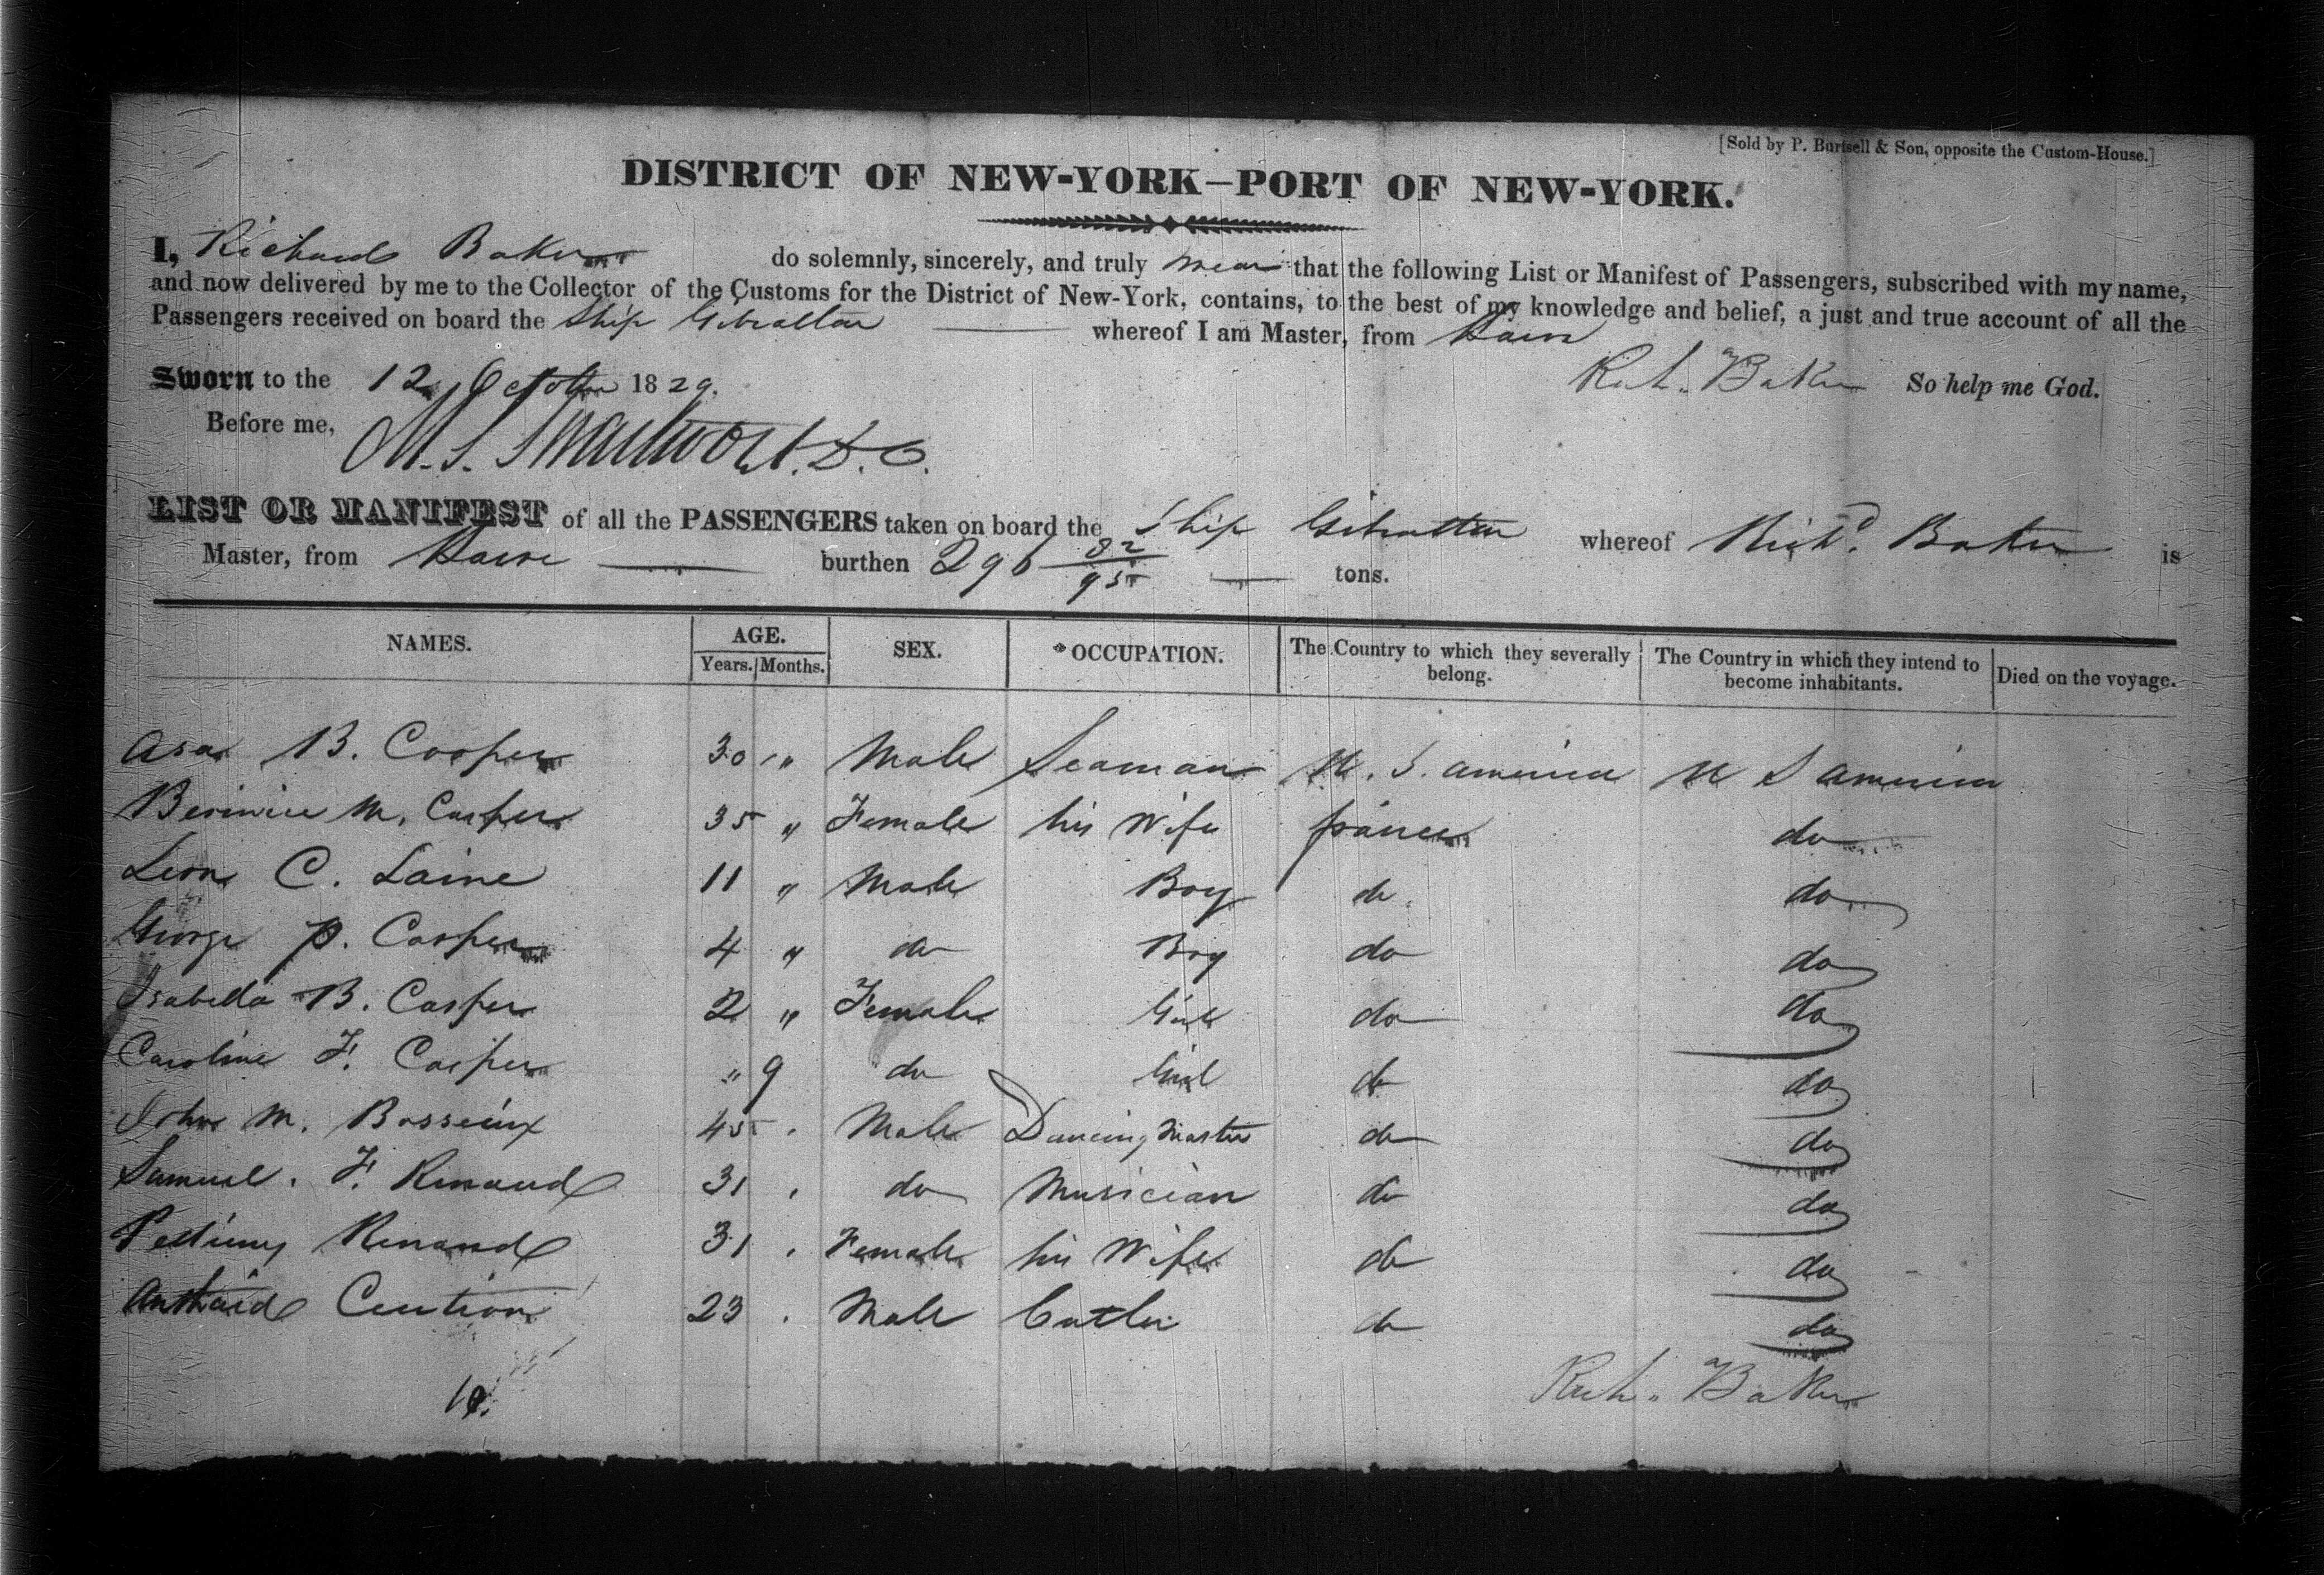 [Sold by P. Burtsell & Son, opposite the Custom-House.]
DISTRICT OF NEW-YORK—PORT OF NEW-YORK.
I, Richard Baker do solemnly, sincerely, and truly swear that the following List or Manifest of Passengers, subscribed with my name,
and now delivered by me to the Collector of the Customs for the District of New-York, contains, to the best of my knowledge and belief, a just and true account of all the
Passengers received on board the Ship Gibraltar whereof I am Master, from Havre
Sworn to the 12 October 1829. Rich. Baker So help me God.
Before me, M. S. Swartwout. D. C.
LIST OR MANIFEST of all the PASSENGERS taken on board the Ship Gibraltar whereof Richd. Baker is
Master, from Havre burthen 296 82/95 tons.
NAMES. AGE. SEX. OCCUPATION. The Country to which they severally belong. The Country in which they intend to become inhabitants. Died on the voyage.
Years. Months.
Asa B. Cooper 30 " Male Seaman U. S. america U S america
M. Cooper 35 " Female his Wife france do
Leon C. Laine 11 " Male Boy do do
George P. Cooper 4 " do Boy do do
Isabella B. Cooper 2 " Female Girl do do
Caroline F. Cooper " 9 do Girl do do
John M. Bosseiux 45 . Male Dancing Master do do
Samuel. F. Renaud 31 . do Musician do do
Renaud 31 . Female his Wife do do
23 . Male Cutler do do
10. Rich. Baker